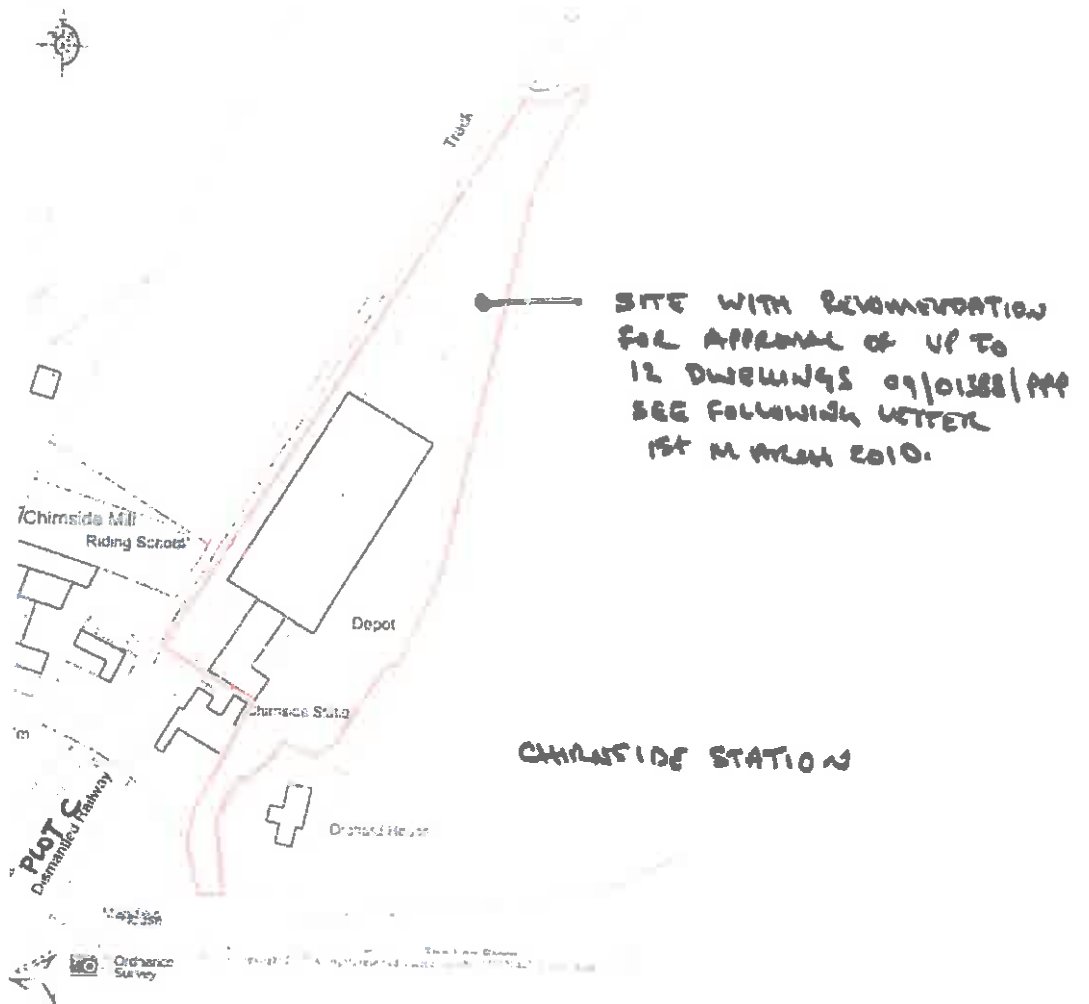 Track
SITE WITH RECOMMENDATION
FOR APPROVAL OF UP TO
12 DWELLINGS 09/01388/PPP
SEE FOLLOWING LETTER
1st MARCH 2010.
Chirnside Mill
Riding School
Depot
Chirnside Statio
CHIRNSIDE STATION
Orchard House
PLOT C
Dismantled Railway
Ordnance
Survey